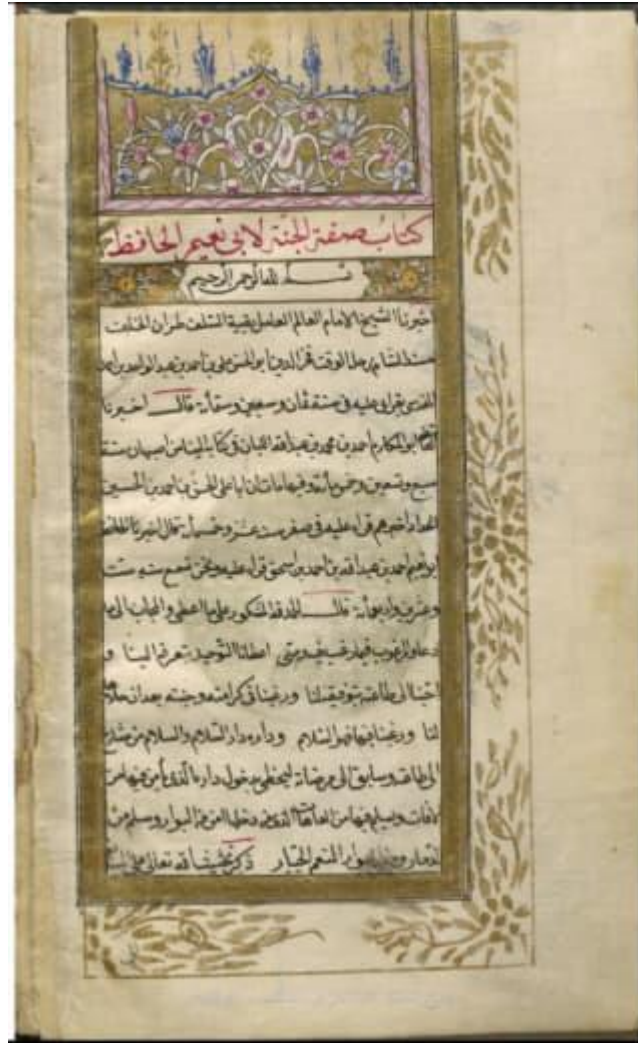 كتاب صفة الجنة لابي نعيم الحافظ
بسم الله الرحمن الرحيم
اخبرنا الشيخ الامام العالم العامل بقية السلف طراز الخلف
مسند الشام رحلة الوقت فخر الدين ابو الحسن علي بن احمد بن عبد الواحد بن احمد
المقدسي بقراتي عليه في سنة ثمان وسبعين وستمأئة قال اخبرنا
ابو المكارم احمد بن محمد بن عبد الله اللبان في كتابه الينا من اصبهان سنة
سبع وتسعين وخمسمأئة وفيها مات ان ابا علي الحسن بن احمد بن الحسين
الحداد اخبرهم قراة عليه في صفر سنة عشر وخمسمأئة قال اخبرنا الحافظ
ابو نعيم احمد بن عبد الله بن احمد بن اسحق قراة عليه ونحن نسمع سنة ست
وعشرين واربعمأئة قال الحمد لله المشكور على ما اعطى والمجاب الى ما
دعا والمرغوب فيما رغب فيه اعطانا التوحيد تعرفا الينا و
الى طاعته بتوفيقه لنا ورغبنا في كرامته وجنته بعد ان
لنا ورغبنا فيها فهو السلام وداره دار السلام والسلام من
الى طاعته وسابق الى مرضاته ليحظى بدخول دار ياًمن فيها من
الافات ويسلم فيها من العاهات دخلها امن من البوار وسلم من
المنعم الجبار ذكر الله تعالى على